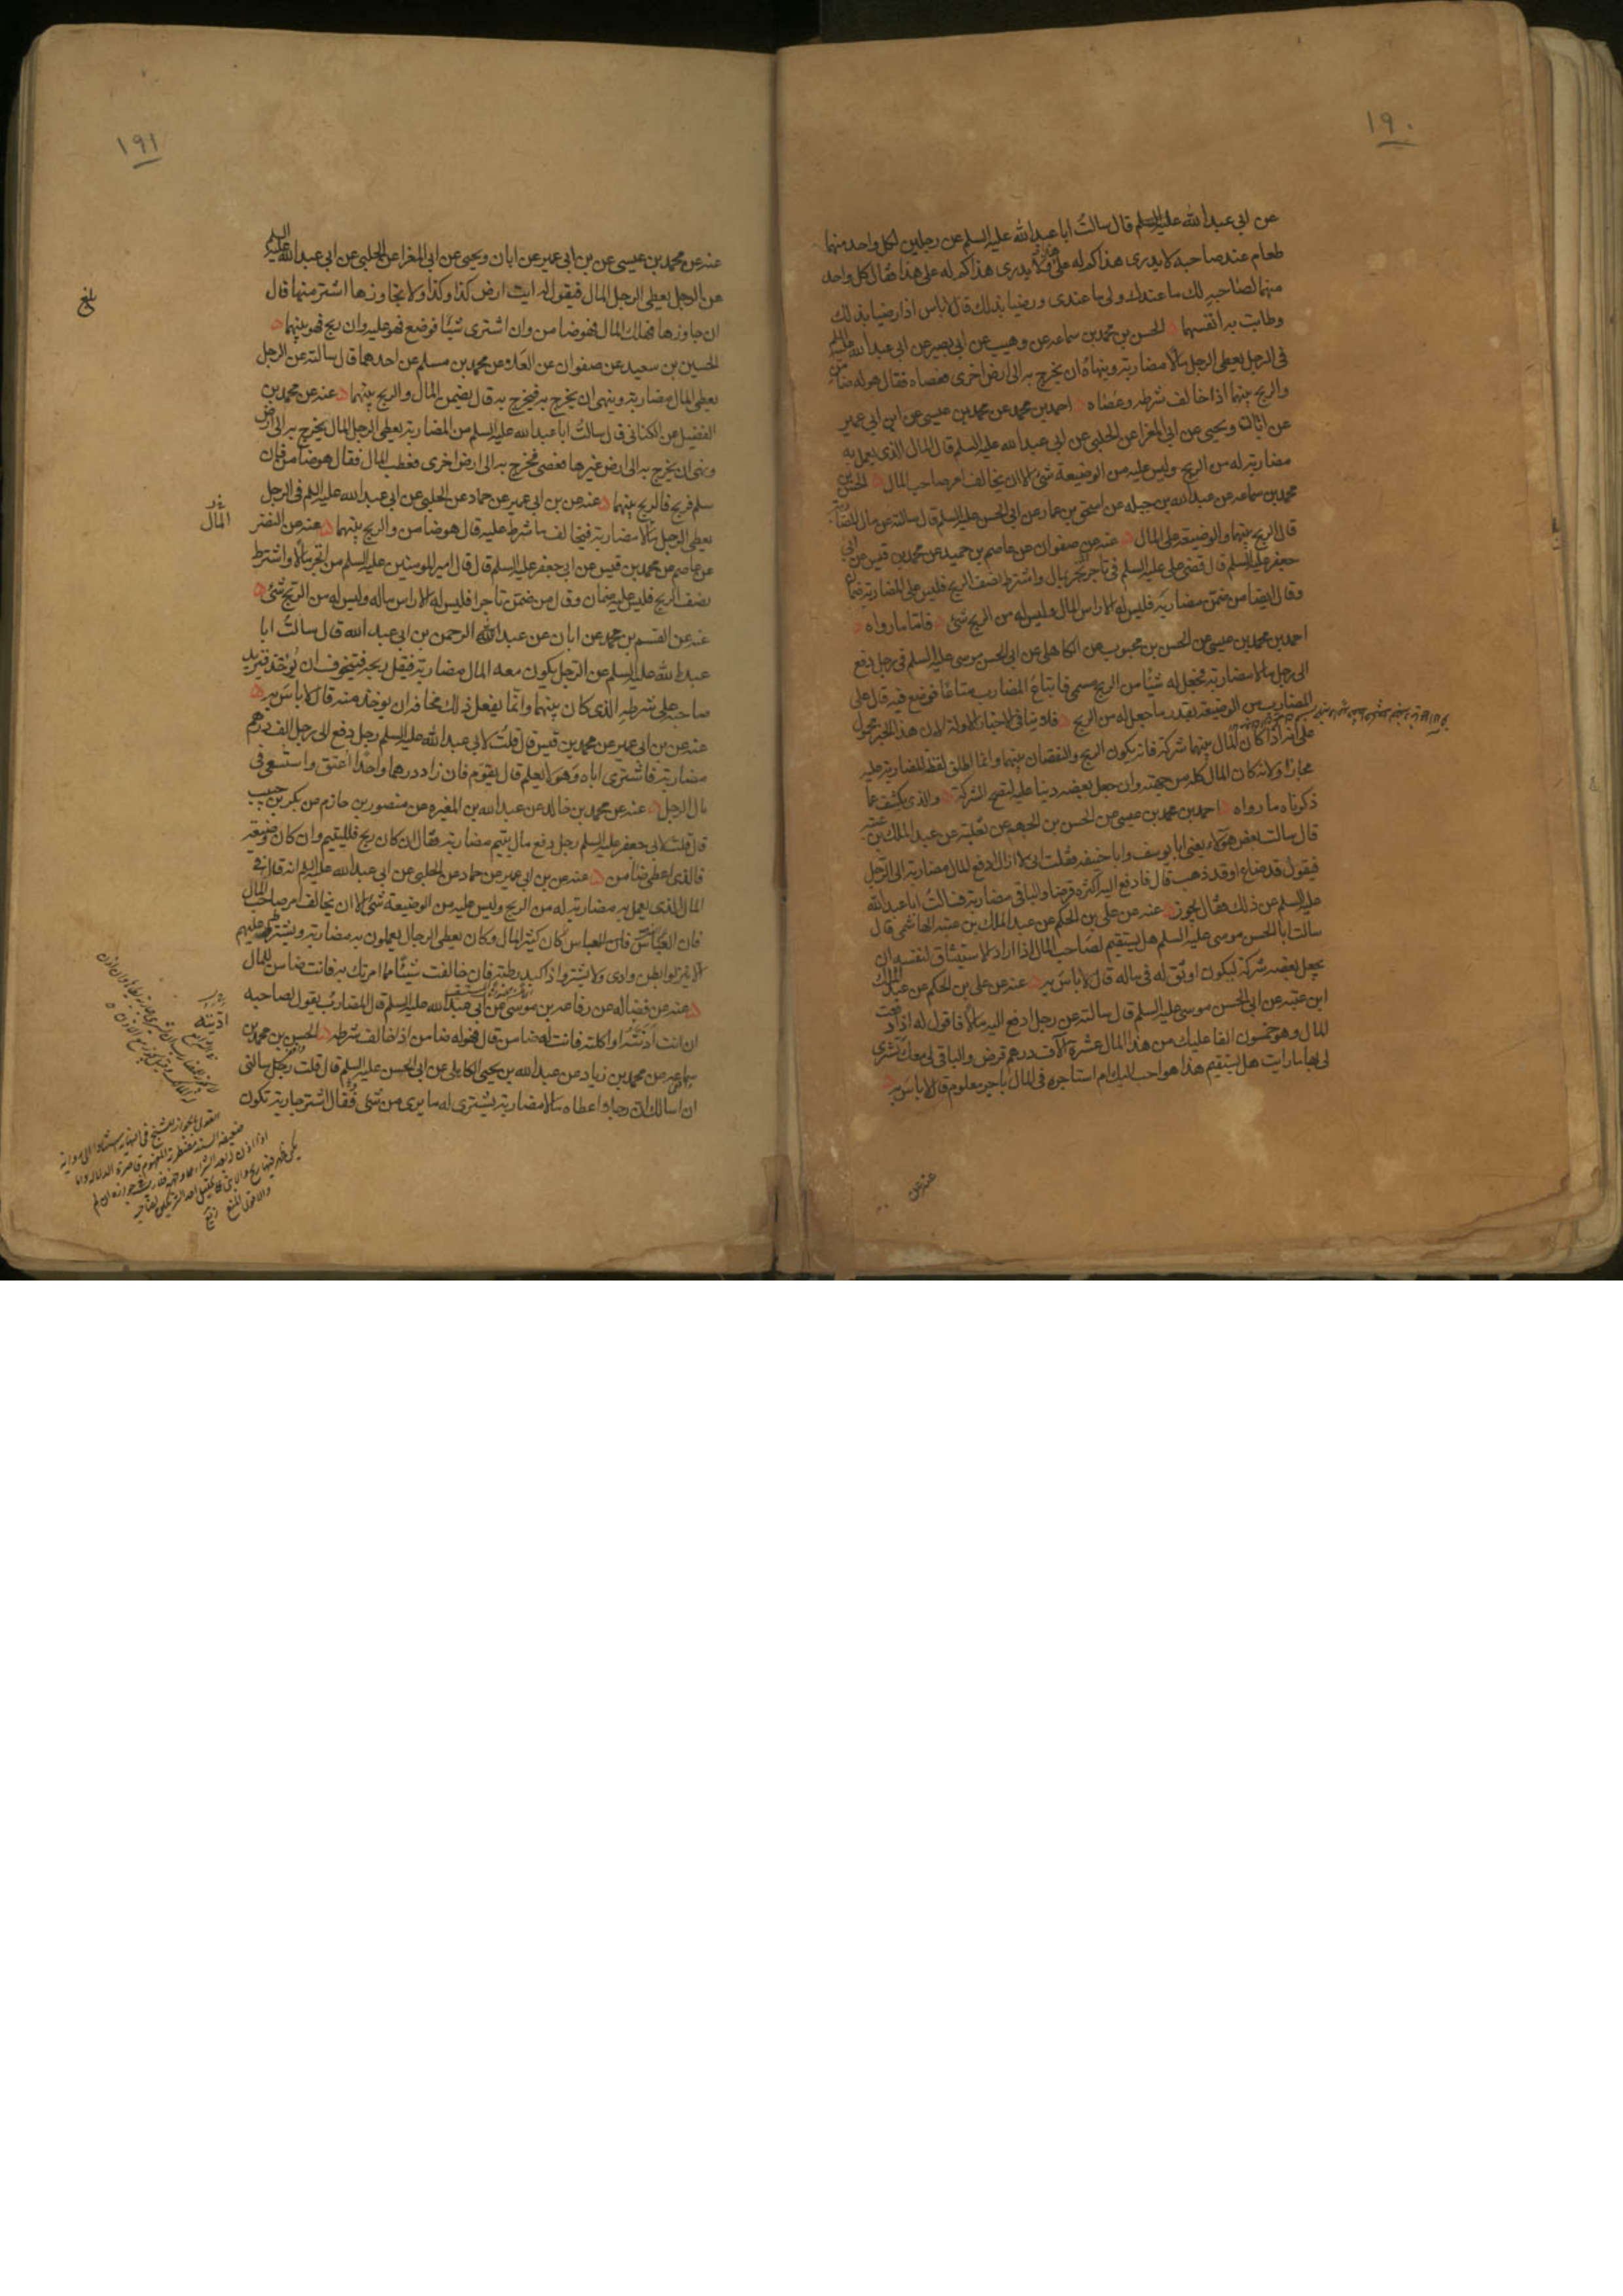 ١٩٠
عن ابى عبد الله عليه السلم قال سالت ابا عبد الله عليه السلم عن رجلين لكل واحد منهما
طعام عند صاحبه لا يدرى هذا كم له على هذا ولا يدرى هذا كم له على هذا فقال كل واحد
منهما لصاحبه لك ما عندك ولى ما عندى ورضيا بذلك قال لا باس اذا رضيا بذلك
وطابت به انفسهما الحسن بن محمد بن سماعه عن وهيب عن ابى بصير عن ابى عبد الله عليه السلم
فى الرجل يعطى الرجل مالا مضاربة وينهاه ان يخرج به الى ارض اخرى فعصاه فقال هو له ضامن
والربح بينهما اذا خالف شرطه وعصاه احمد بن محمد عن محمد بن عيسى عن ابن ابى عمير
عن ابان ويحيى عن ابى المغرا عن الحلبى عن ابى عبد الله عليه السلم قال المال الذى يعمل به
مضاربة له من الربح وليس عليه من الوضيعة شئ الا ان يخالف امر صاحب المال الحسن بن
محمد بن سماعه عن عبد الله بن جبله عن اسحق بن عمار عن ابى الحسن عليه السلم قال سالته عن مال المضاربة
قال الربح بينهما والوضيعة على المال عنه عن صفوان عن عاصم بن حميد عن محمد بن قيس عن ابى
جعفر عليه السلم قال قضى على عليه السلم فى تاجر تجر بمال واشترط نصف الربح فليس على المضاربة ضمان
وقال ايضا من ضمن مضاربه فليس له الا راس المال وليس له من الربح شئ فاما ما رواه
احمد بن محمد بن عيسى عن الحسن بن محبوب عن الكاهلى عن ابى الحسن موسى عليه السلم فى رجل دفع
الى رجل مالا مضاربة فجعل له شيئا من الربح مسمى فابتاع المضارب متاعا فوضع فيه قال على
المضارب من الوضيعة بقدر ما جعل له من الربح فلا ينافى الاخبار الاولة لان هذا الخبر محمول
على انه اذا كان المال بينهما شركة فانه يكون الربح والنقصان بينهما وانما اطلق لفظ المضاربة عليه
مجازا ولانه كان المال كله من جهته وان جعل بعضه دينا عليه لتصح الشركة والذى يكشف عما
ذكرناه ما رواه احمد بن محمد بن عيسى عن الحسن بن الجهم عن ثعلبة عن عبد الملك بن عتبه
قال سالت بعض هؤلاء يعنى ابا يوسف وابا حنيفه فقلت انى لا ازال ادفع المال مضاربة الى الرجل
فيقول قد ضاع او قد ذهب قال فادفع اليه اكثره قرضا والباقى مضاربة فسالت ابا عبد الله
عليه السلم عن ذلك فقال يجوز عنه عن على بن الحكم عن عبد الملك بن عتبه الهاشمى قال
سالت ابا الحسن موسى عليه السلم هل يستقيم لصاحب المال اذا اراد الاستيثاق لنفسه ان
يجعل بعضه شركة ليكون اوثق له فى ماله قال لا باس به عنه عن على بن الحكم عن عبد الملك
ابن عتبه عن ابى الحسن موسى عليه السلم قال سالته عن رجل ادفع اليه مالا فاقول له اذا دفعت
المال وهو خمسون الفا عليك من هذا المال عشرة آلاف درهم قرض والباقى لى معك تشترى
لى بها ما رايت هل يستقيم هذا هو احب اليك ام استاجره فى المال باجر معلوم قال لا باس به
عنه عن
١٩١
عنه عن محمد بن عيسى عن بن ابى عمير عن ابان ويحيى عن ابى المغرا عن الحلبى عن ابى عبد الله عليه السلم
عن الرجل يعطى الرجل المال فيقول له ايت ارض كذا وكذا ولا تجاوزها اشتر منها قال
ان جاوزها فهلك المال فهو ضامن وان اشترى شيئا فوضع فهو عليه وان ربح فهو بينهما
بلغ
الحسين بن سعيد عن صفوان عن العلاء عن محمد بن مسلم عن احدهما قال سالته عن الرجل
يعطى المال مضاربة وينهى ان يخرج به فيخرج به قال يضمن المال والربح بينهما عنه عن محمد بن
الفضيل عن الكنانى قال سالت ابا عبد الله عليه السلم عن المضاربة يعطى الرجل المال يخرج به الى ارض
ونهى ان يخرج به الى ارض غيرها فعصى فخرج به الى ارض اخرى فعطب المال فقال هو ضامن فان
سلم فربح فالربح بينهما عنه عن بن ابى عمير عن حماد عن الحلبى عن ابى عبد الله عليه السلم فى الرجل
المال
يعطى الرجل مالا مضاربة فيخالف ما شرط عليه قال هو ضامن والربح بينهما عنه عن النضر
عن عاصم عن محمد بن قيس عن ابى جعفر عليه السلم قال قال امير المومنين عليه السلم من اتجر مالا واشترط
نصف الربح فليس عليه ضمان وقال من ضمن تاجرا فليس له الا راس ماله وليس له من الربح شئ
عنه عن القسم بن محمد عن ابان عن عبد الرحمن بن ابى عبد الله قال سالت ابا
عبد الله عليه السلم عن الرجل يكون معه المال مضاربة فيقل ربحه فيتخوف ان يؤخذ فيزيد
صاحبه على شرطه الذى كان بينهما وانما يفعل ذلك مخافة ان يوخذ منه قال لا باس به
عنه عن بن ابى عمير عن محمد بن قيس قال قلت لابى عبد الله عليه السلم رجل دفع الى رجل الف درهم
مضاربة فاشترى اباه وهو لا يعلم قال يقوم فان زاد درهما واحدا اعتق واستسعى فى
مال الرجل عنه عن محمد بن خالد عن عبد الله بن المغيره عن منصور بن حازم عن بكر بن حبيب
قال قلت لابى جعفر عليه السلم رجل دفع مال يتيم مضاربة فقال ان كان ربح فلليتيم وان كان وضيعة
فالذى اعطى ضامن عنه عن بن ابى عمير عن حماد عن الحلبى عن ابى عبد الله عليه السلم انه قال فى
المال الذى يعمل به مضاربة له من الربح وليس عليه من الوضيعة شئ الا ان يخالف امر صاحب المال
فان العباس كان كثير المال وكان يعطى الرجال يعملون به مضاربة ويشترط عليهم
الا ينزلوا بطن وادى ولا يشتروا ذا كبد رطبة فان خالفت شيئا مما امرتك به فانت ضامن المال
عنه عن فضاله عن رفاعه بن موسى عن ابى عبد الله عليه السلم قال المضارب يقول لصاحبه
ان انت ادنته او اكلته فانت له ضامن قال فهو له ضامن اذا خالف شرطه الحسن بن محمد بن
ادنته
سماعه عن محمد بن زياد عن عبد الله بن يحيى الكاهلى عن ابى الحسن عليه السلم قال قلت رجل سالنى
ان اسالك ان رجلا اعطاه مالا مضاربة يشترى له ما يرى من شئ فقال اشتر جارية تكون